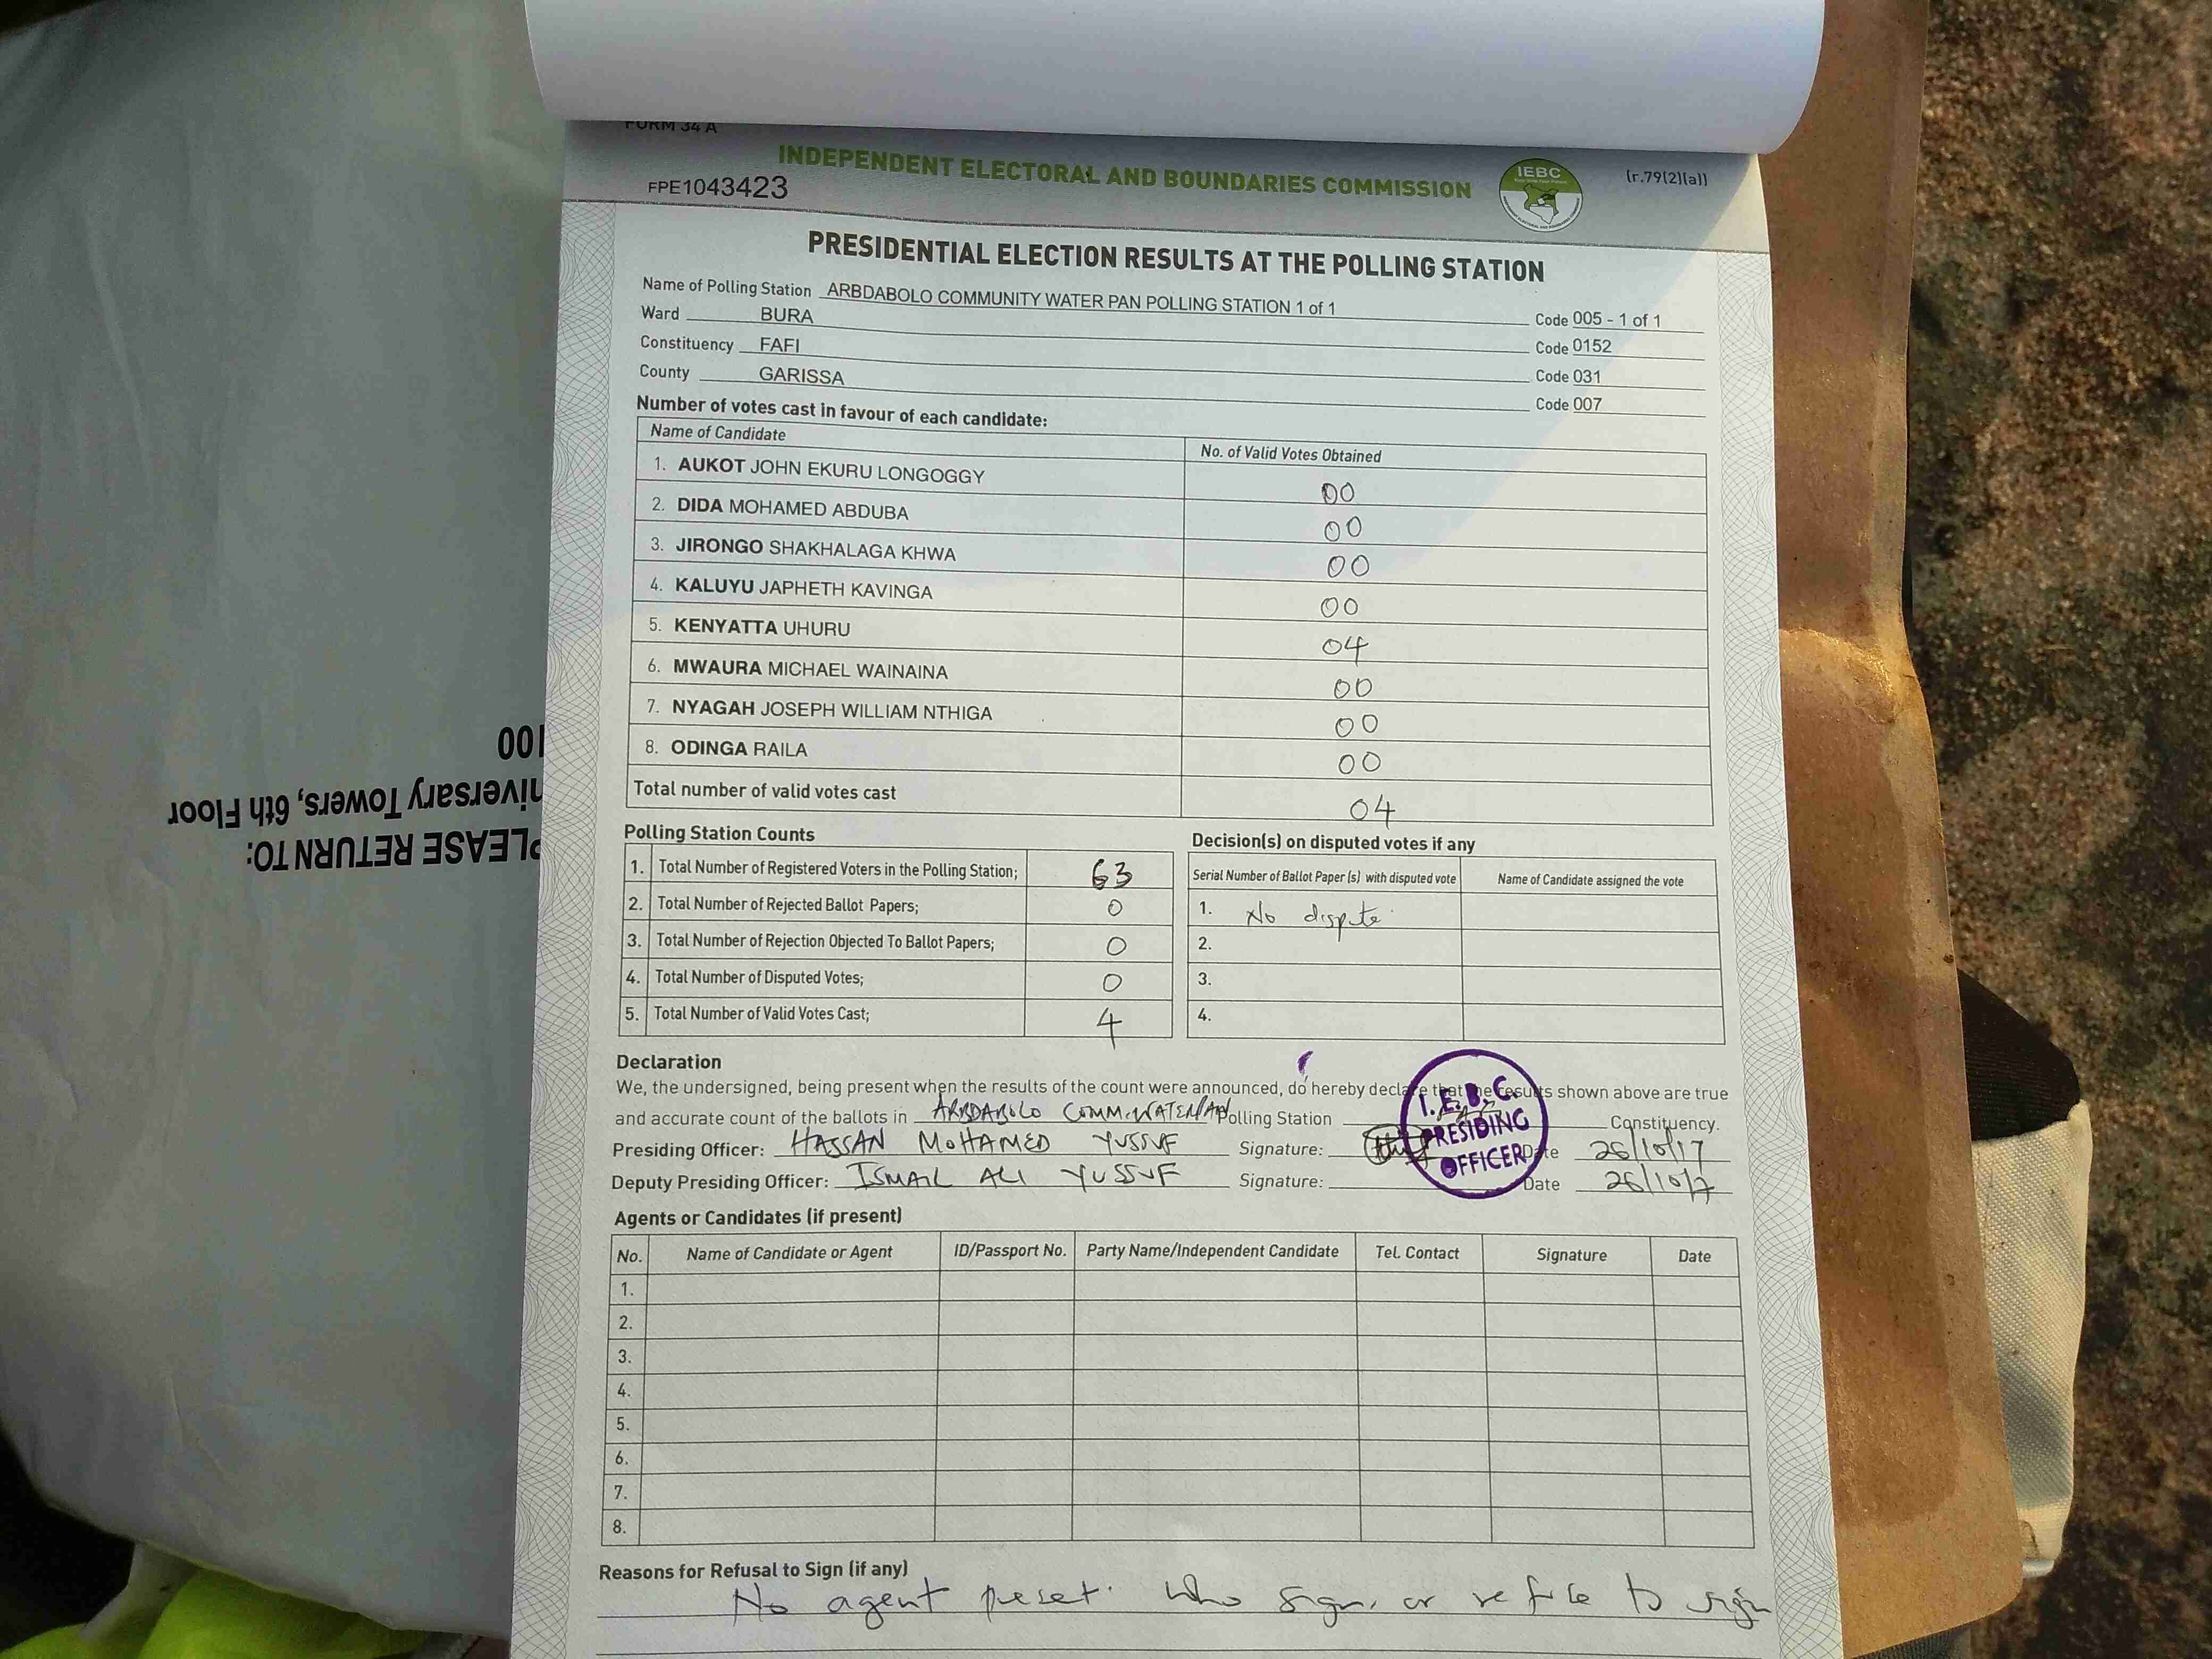 FORM 34 A
INDEPENDENT ELECTORAL AND BOUNDARIES COMMISSION
IEBC
(r.79(2)(a))
FPE1043423
PRESIDENTIAL ELECTION RESULTS AT THE POLLING STATION
Name of Polling Station ARBDABOLO COMMUNITY WATER PAN POLLING STATION 1 of 1 Code 005 - 1 of 1
Ward BURA Code 0152
Constituency FAFI Code 031
County GARISSA Code 007
Number of votes cast in favour of each candidate:
Name of Candidate No. of Valid Votes Obtained
1. AUKOT JOHN EKURU LONGOGGY 00
2. DIDA MOHAMED ABDUBA 00
3. JIRONGO SHAKHALAGA KHWA 00
4. KALUYU JAPHETH KAVINGA 00
5. KENYATTA UHURU 04
6. MWAURA MICHAEL WAINAINA 00
7. NYAGAH JOSEPH WILLIAM NTHIGA 00
8. ODINGA RAILA 00
Total number of valid votes cast 04
Polling Station Counts
1. Total Number of Registered Voters in the Polling Station; 63
2. Total Number of Rejected Ballot Papers; 0
3. Total Number of Rejection Objected To Ballot Papers; 0
4. Total Number of Disputed Votes; 0
5. Total Number of Valid Votes Cast; 4
Decision(s) on disputed votes if any
Serial Number of Ballot Paper (s) with disputed vote Name of Candidate assigned the vote
1. No dispute
2.
3.
4.
Declaration
We, the undersigned, being present when the results of the count were announced, do hereby declare that the results shown above are true
and accurate count of the ballots in ARBDABOLO COMM.WATERPAN Polling Station Constituency.
Presiding Officer: HASSAN MOHAMED YUSSUF Signature: Date 26/10/17
Deputy Presiding Officer: ISMAIL ALI YUSSUF Signature: Date 26/10/7
I.E.B.C.
PRESIDING
OFFICER
Agents or Candidates (if present)
No. Name of Candidate or Agent ID/Passport No. Party Name/Independent Candidate Tel. Contact Signature Date
1.
2.
3.
4.
5.
6.
7.
8.
Reasons for Refusal to Sign (if any)
No agent preset. who sign, or refuse to sign
PLEASE RETURN TO:
niversary Towers, 6th Floor
100